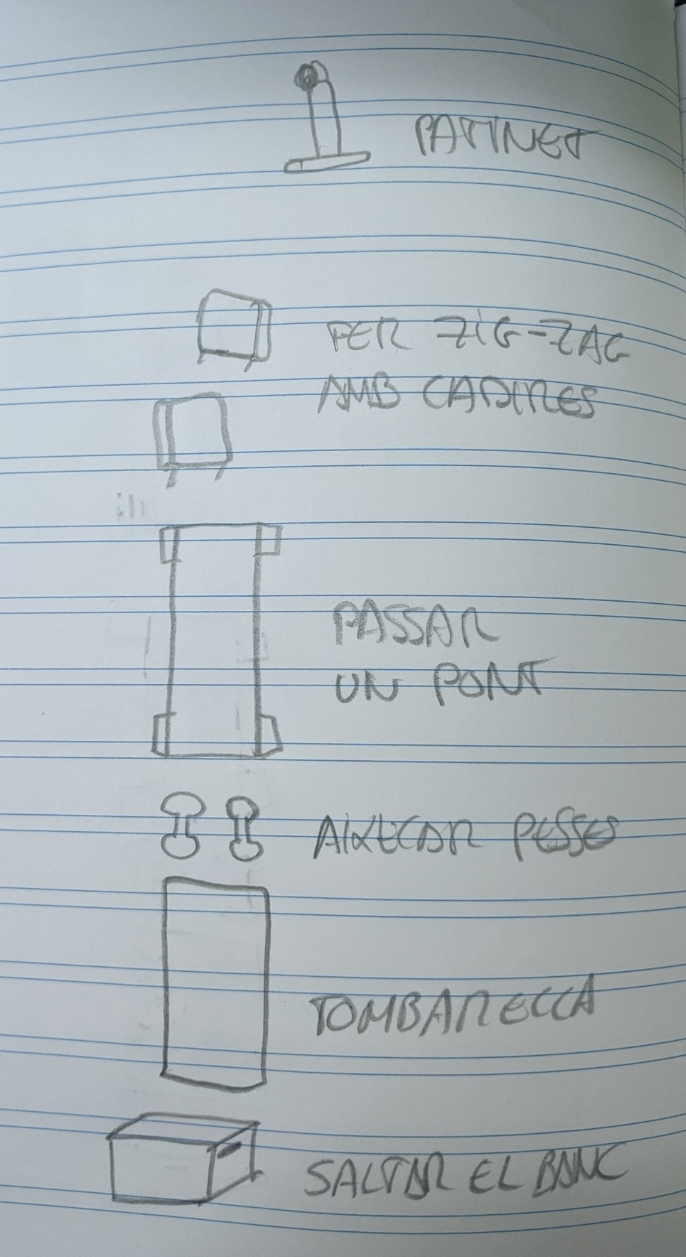 PATINET
FER ZiG-ZAG
AMB CADIRES
PASSAR
UN PONT
AIXECAR PESSES
TOMBARELLA
SALTAR EL BANC